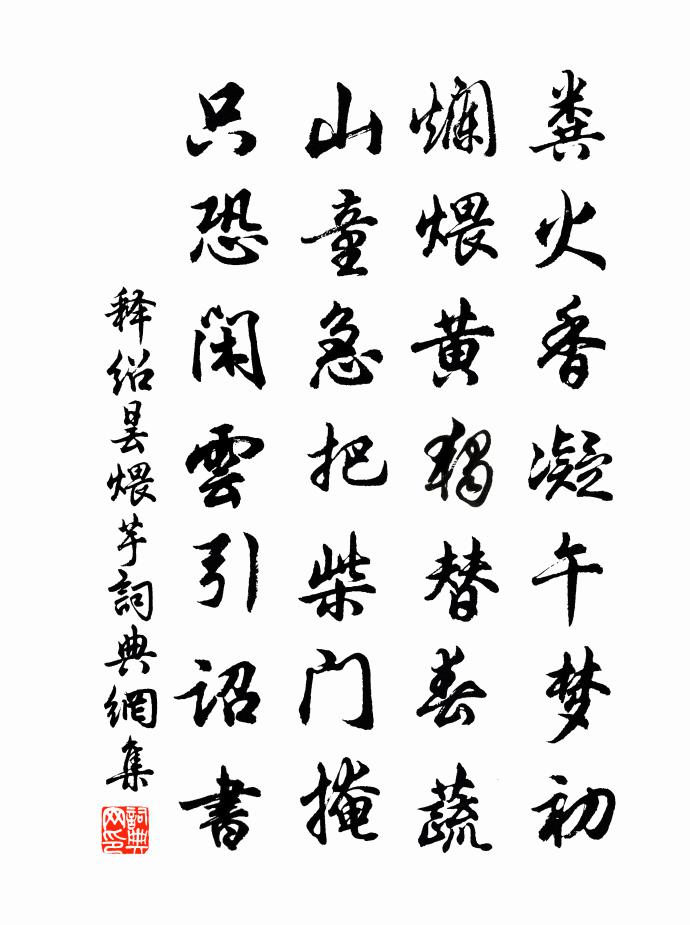 粪火香凝午梦初
爛煨黄獨替春蔬
山童急把柴门掩
只恐闲雲引詔書
释绍昙煨芋詞典網集
詞典网印